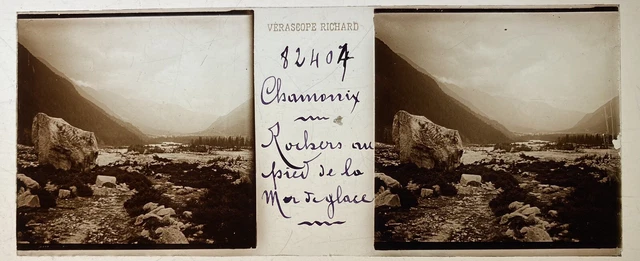 VERASCOPE RICHARD
82407
Chamonix
Rochers au
pied de la
Mer de glace